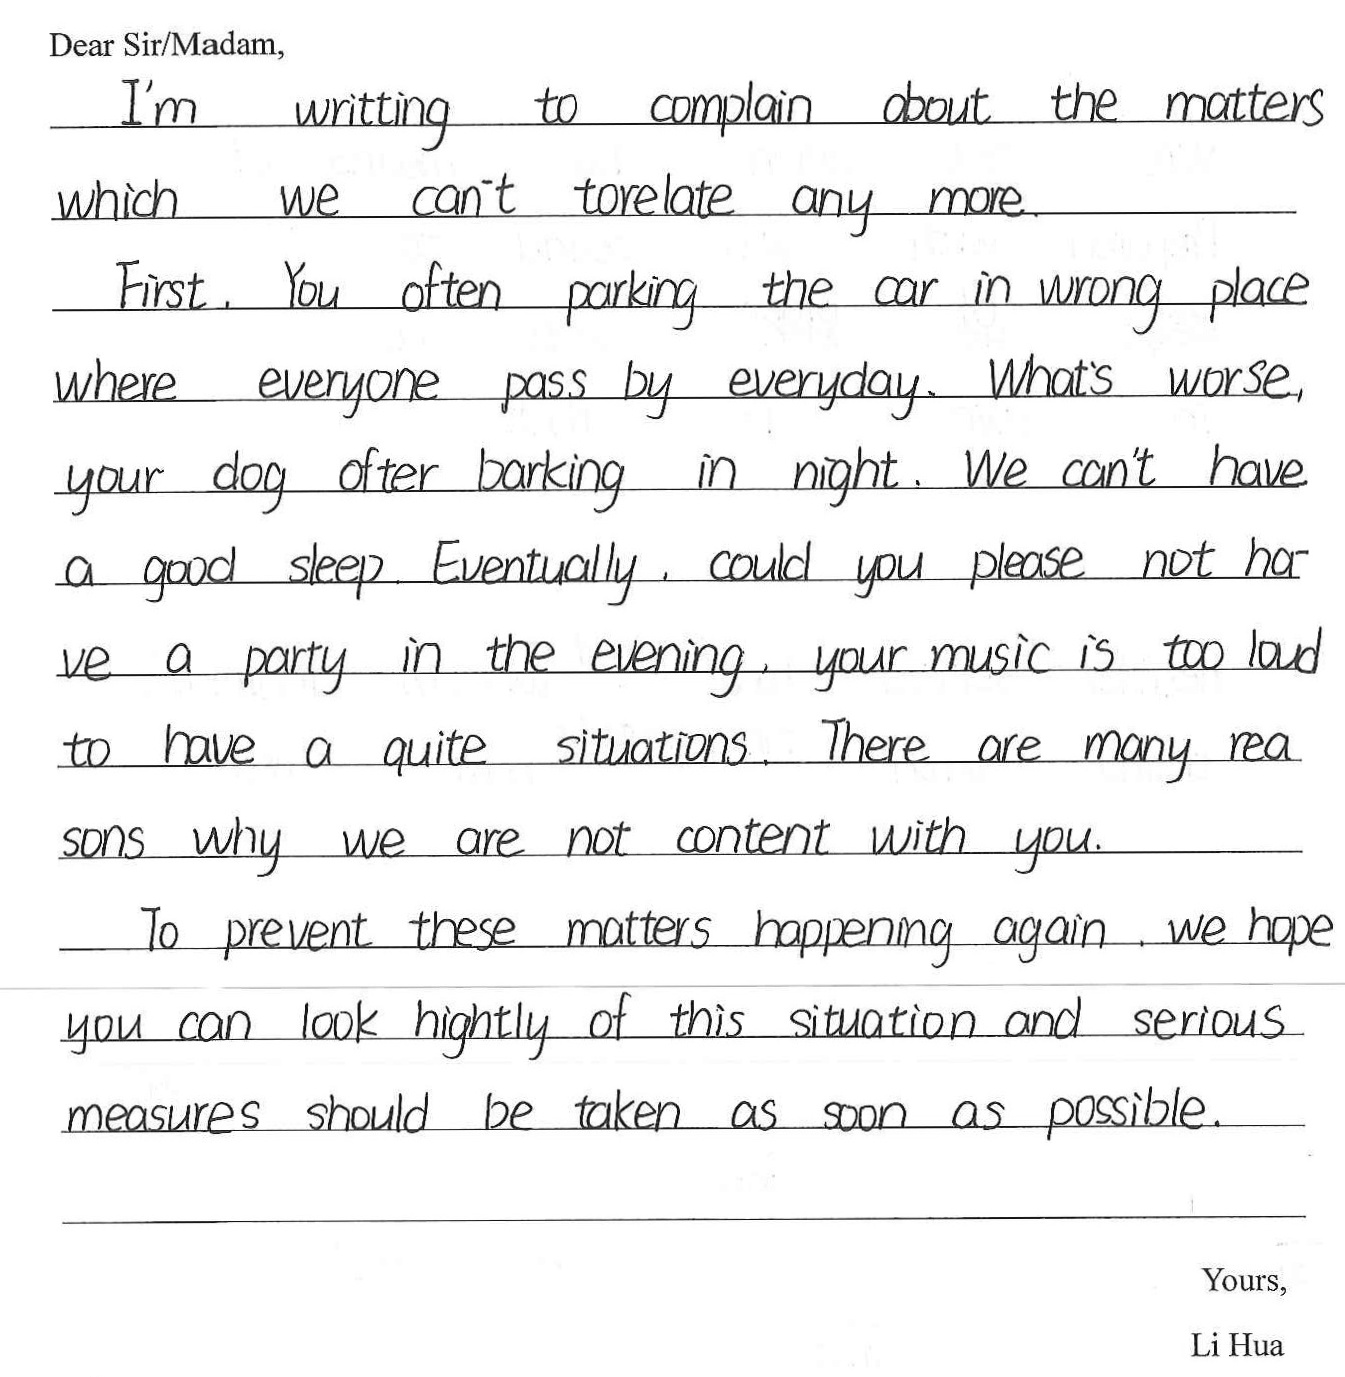 Dear Sir/Madam,
I'm writting to complain about the matters
which we can't torelate any more.
First, You often parking the car in wrong place
where everyone pass by everyday. What's worse,
your dog ofter barking in night. We can't have
a good sleep. Eventually, could you please not ha-
ve a party in the evening, your music is too loud
to have a quite situations. There are many rea
sons why we are not content with you.
To prevent these matters happening again, we hope
you can look hightly of this situation and serious
measures should be taken as soon as possible.
Yours,
Li Hua